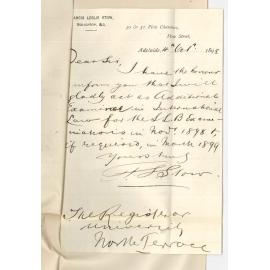 FRANCIS LESLIE STOW,
SOLICITOR, &c.
30 & 31 Pirie Chambers,
Pirie Street,
Adelaide, 4th Oct. 1898
Dear Sir,
I have the honour
inform you that I will
gladly act as Additional
Examiner in International
Law for the L L B Exami-
nations in Novr 1898 &,
if required, in March 1899
Yours truly
F L Stow
The Registrar
University
North Terrace